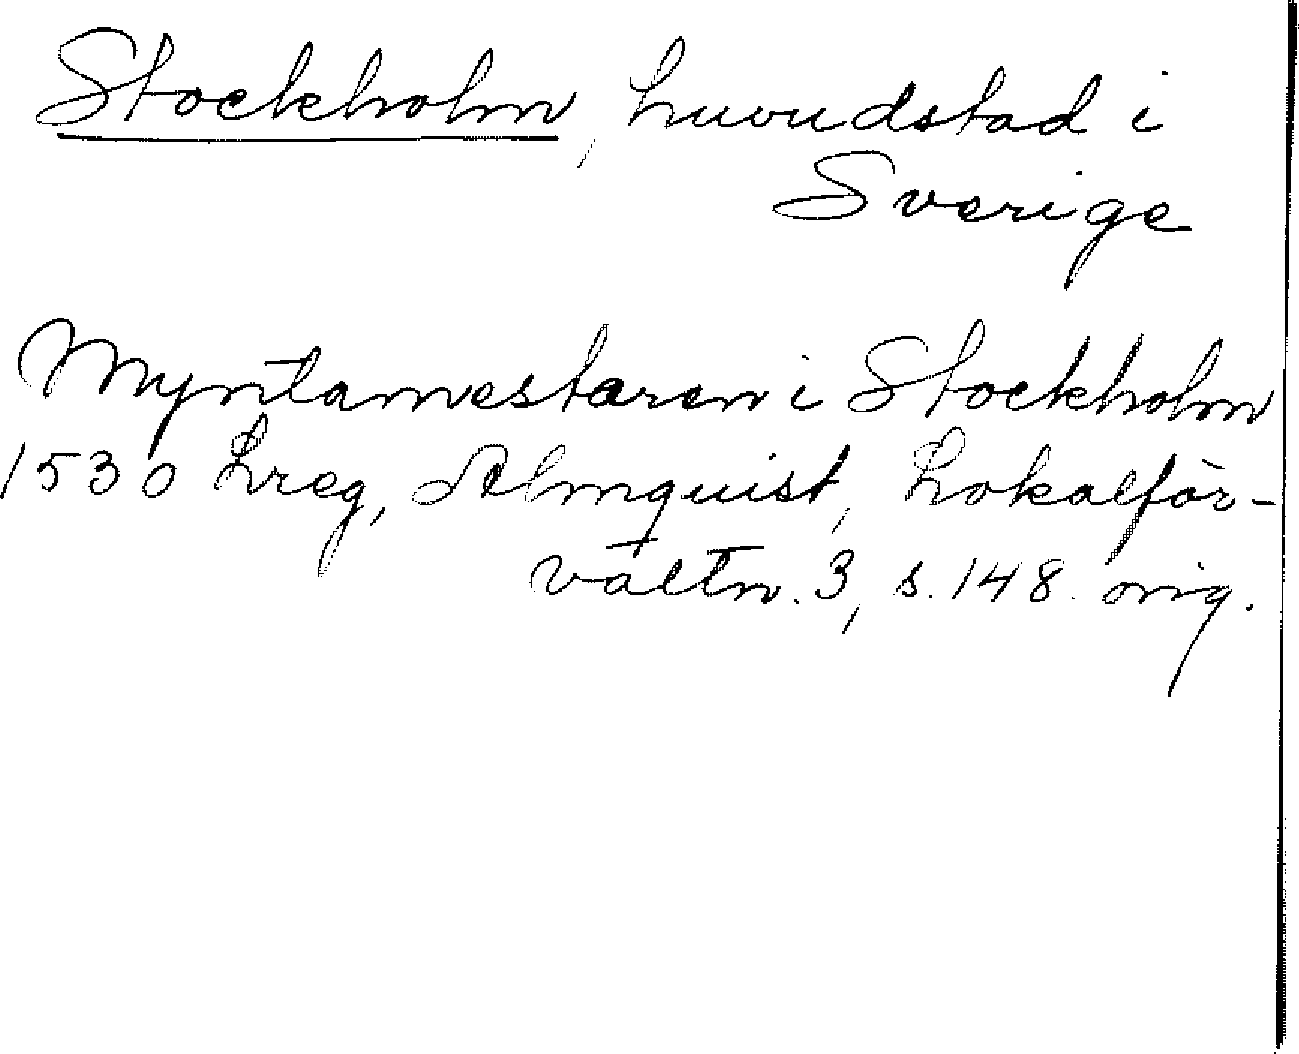 Stockholm, huvudstad i
Sverige
Myntamestaren i Stockholm
1530 Lreg, Almquist, Lokalför-
valtn. 3, s. 148. orig.